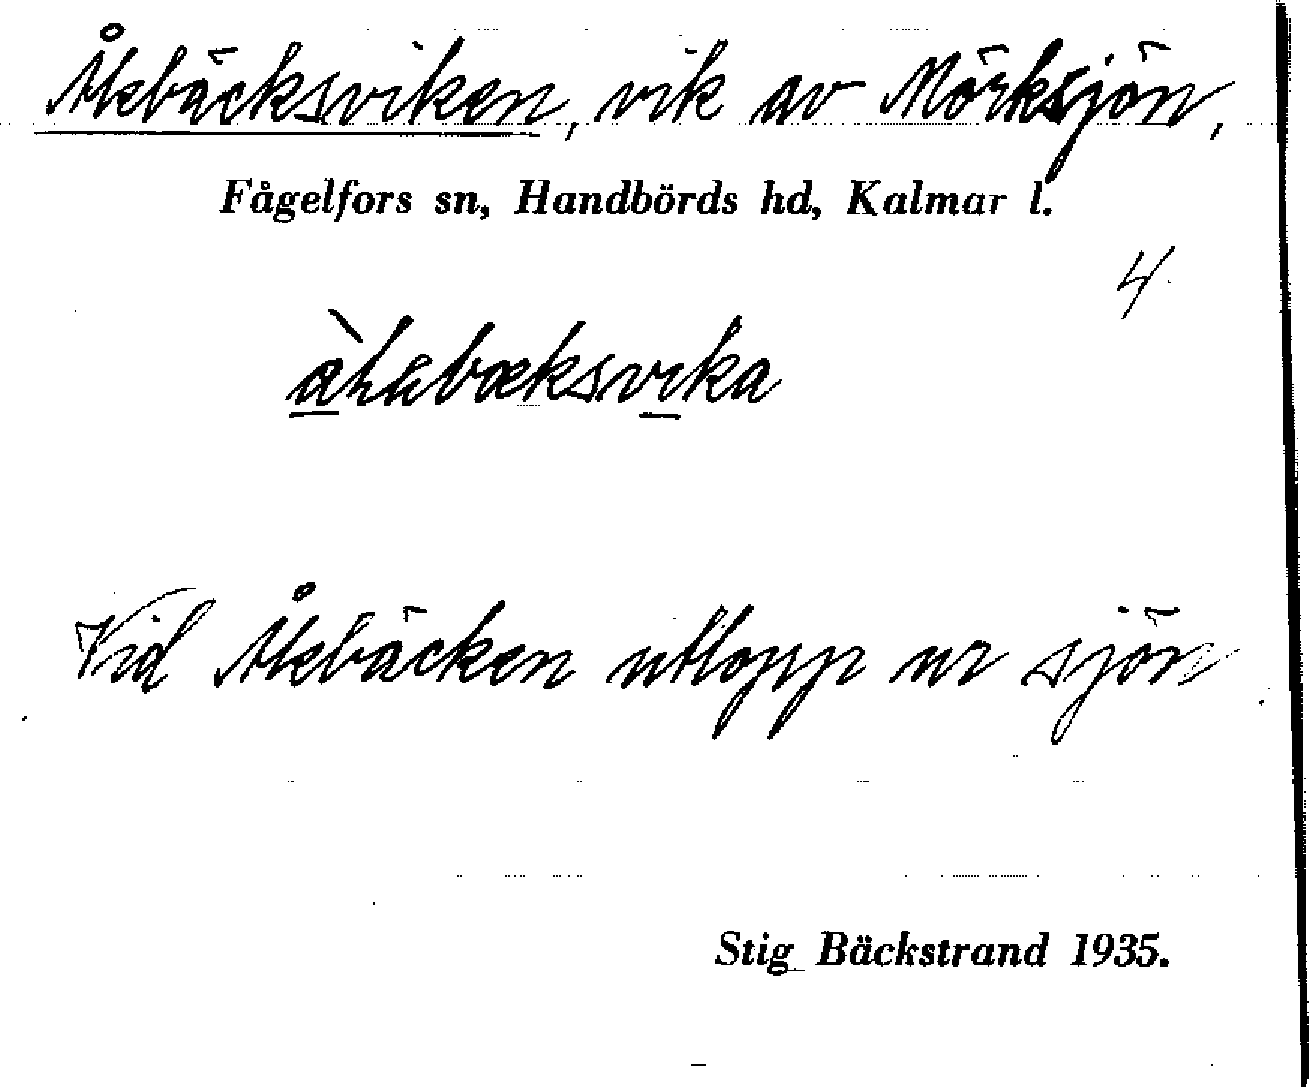 Åkebäcksviken, vik av Mörksjön,
Fågelfors sn, Handbörds hd, Kalmar l.
4
Vid Åkebäcken utlopp ur sjön
Stig Bäckstrand 1935.